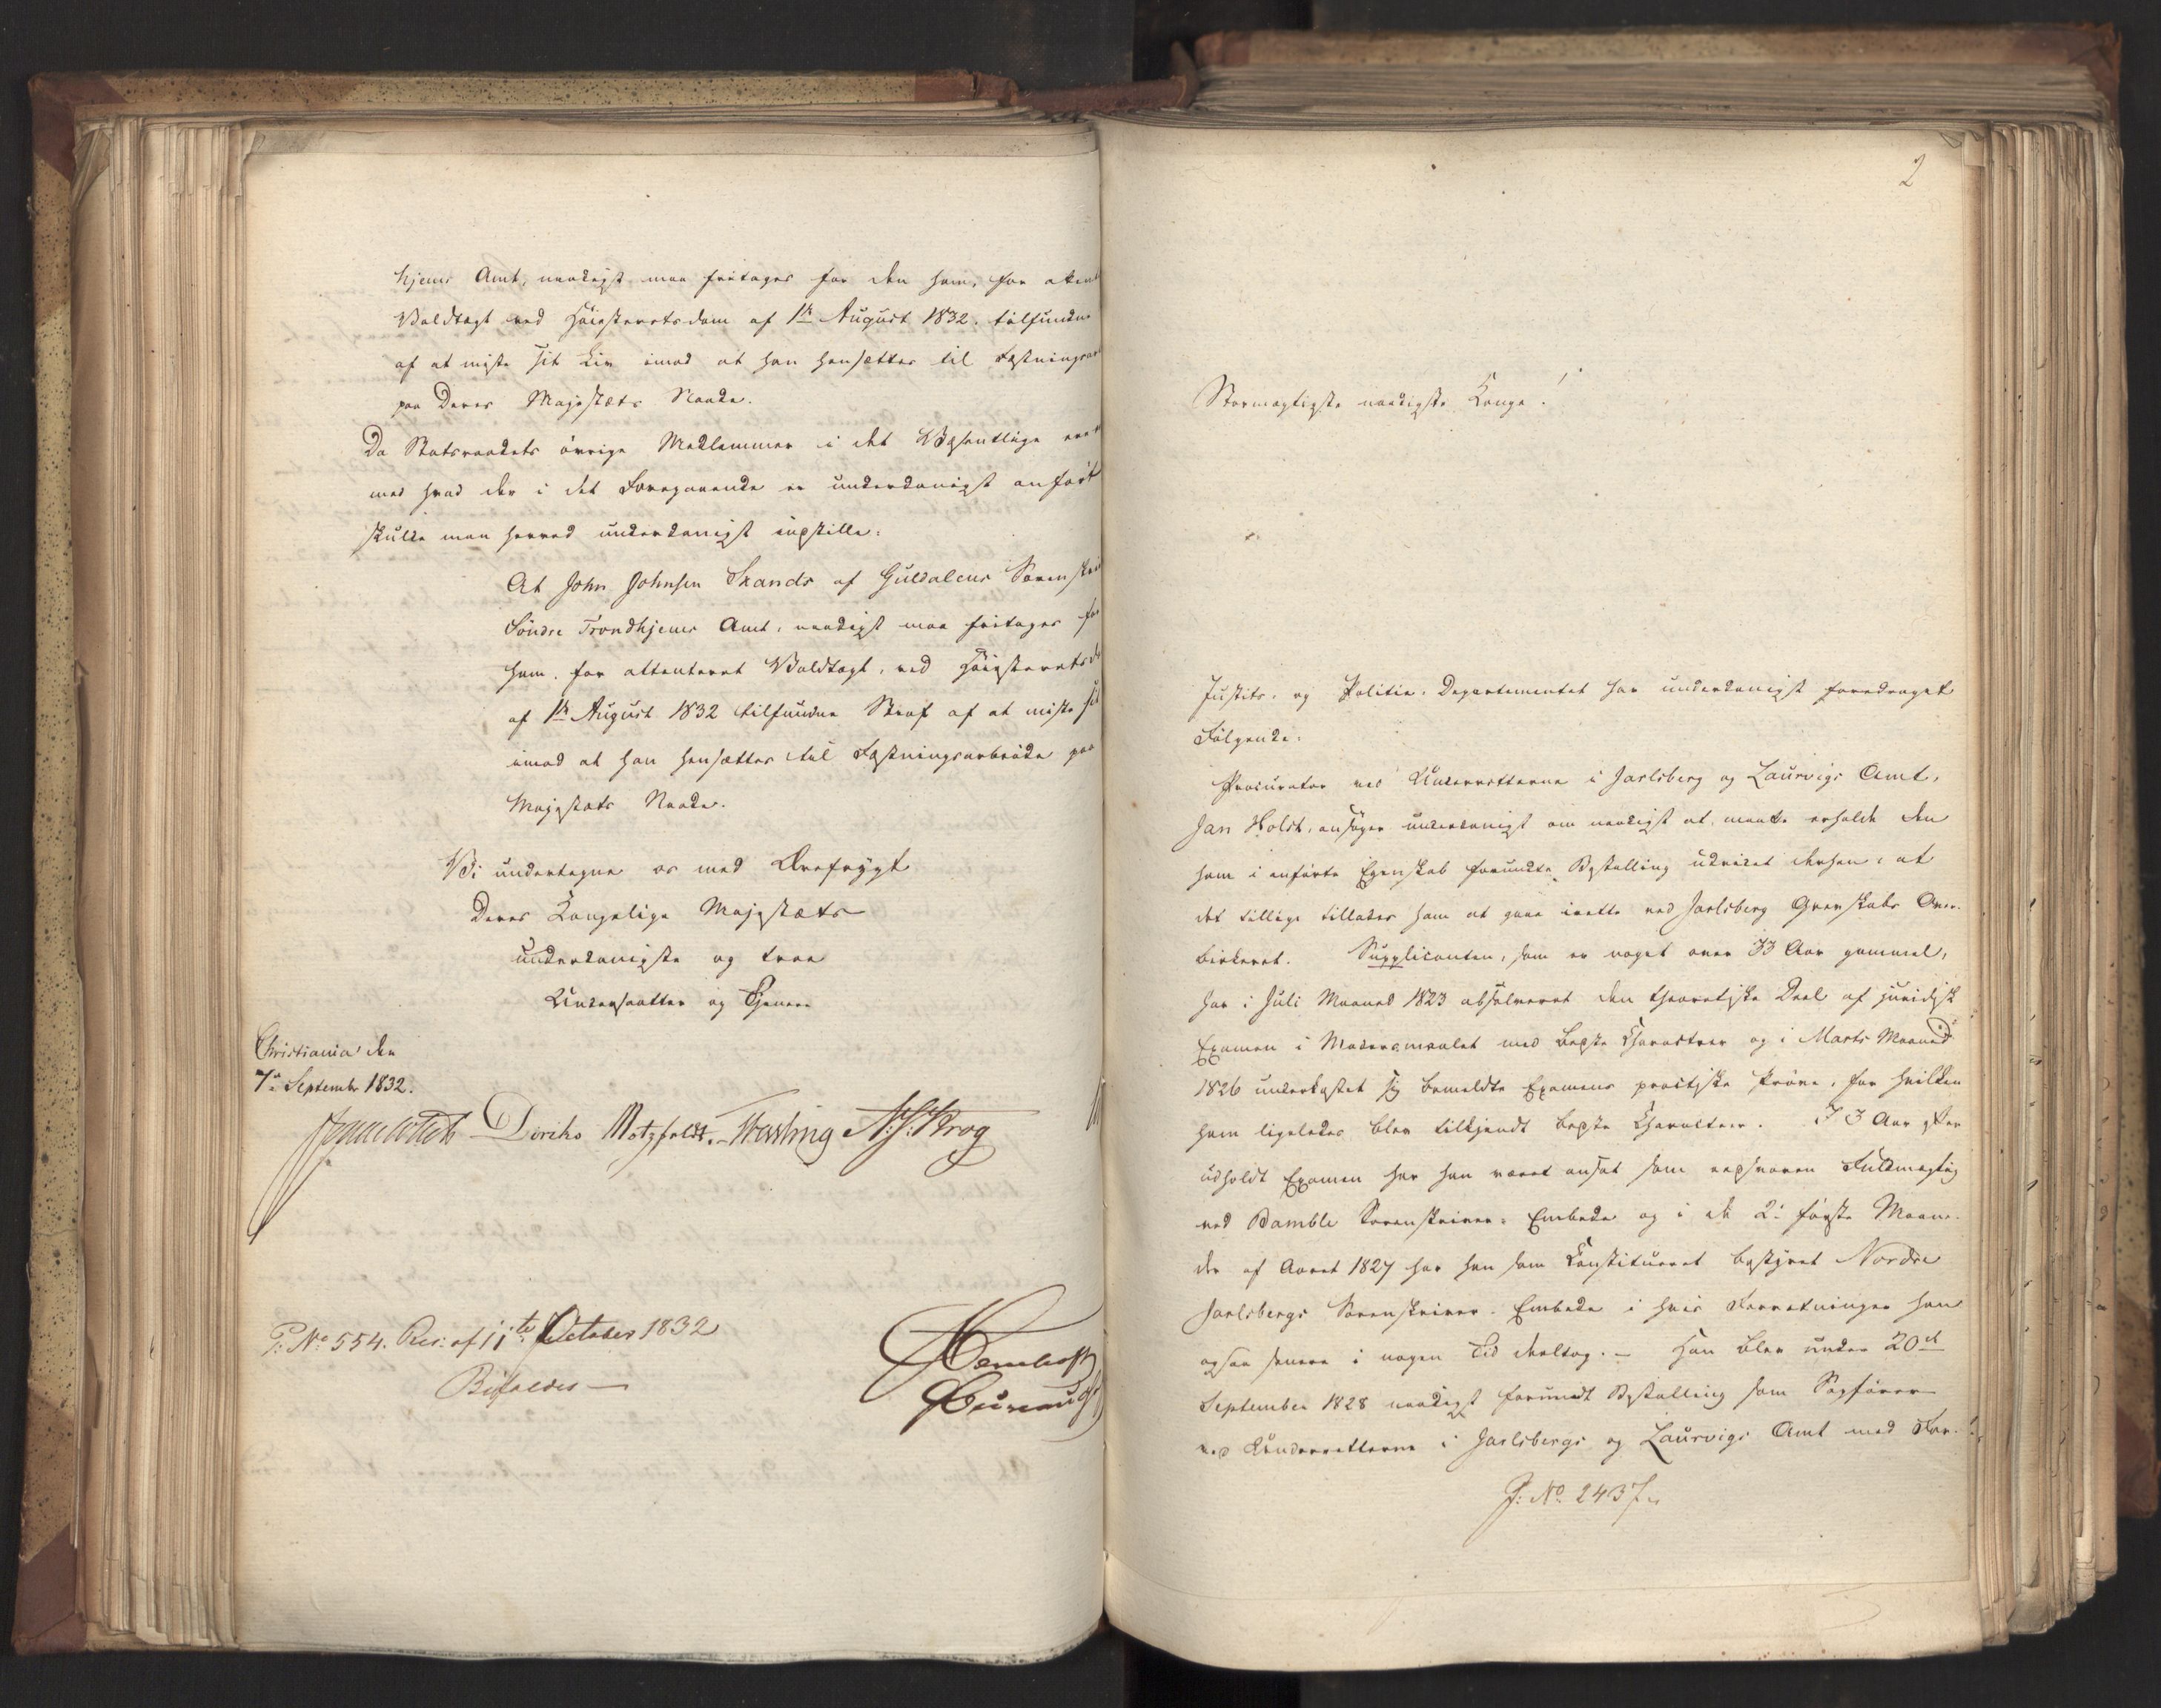 hjems Amt, naadigst maa fritages for den ham, for atten
Voldtægt ved Høiesteretsdom af 1ste August 1832. tilfundne
af at miste sit Liv imod at han hensættes til Fæstningsar
paa Deres Majestæts Naade.
Da Statsraadets øvrige Medlemmer i det Væsentlige ere
med hvad der i det Foregaaende er underdanigst anført
skulle man herved underdanigst indstille:
At John Johnsen Skands af Guldalens Sorenskri
Søndre Trondhjems Amt, naadigst maa fritages for
ham, for attenteret Voldtægt, ved Høiesteretsd
af 1ste August 1832 tilfundne Straf af at miste sit
imod at han hensættes til Fæstningsarbeide paa
Majestæts Naade.
Vi undertegne os med Ærefrygt
Deres Kongelige Majestæts
underdanigste og troe
Undersaatter og Tjenere
Christiania den
7de Septembr 1832.
Diriks Motzfeldt. N. J. Krog
P: No 554. Res: af 11te October 1832
Bifaldes
2
Stormægtigste naadigste Konge!
Justits- og Politie-Departementet har underdanigst foredraget
Følgende:
Procurator ved Underretterne i Jarlsberg og Laurvigs Amt,
Jan Holst, ansøger underdanigst om naadigst at maatte erholde den
ham i anførte Egenskab forundte Bestalling udvidet derhen, at
det tillige tillades ham at gaae irette ved Jarlsberg Grevskabs Over-
birkeret. Supplicanten, som er noget over 33 Aar gammel,
har i Juli Maaned 1823 absolveret den theoretiske Deel af juridisk
Examen i Modersmaalet med bedste Charakteer og i Marts Maaned
1826 underkastet sig bemeldte Examens practiske Prøve, for hvilken
ham ligeledes blev tilkjendt bedste Charakteer. I 3 Aar efter
udholdt Examen har han været ansat som edsvoren Fuldmægtig
ved Bamble Sorenskriver-Embede og i de 2de første Maane-
der af Aaret 1827 har han som Constitueret bestyret Nordre
Jarlsbergs Sorenskriver-Embede i hvis Forretninger han
ogsaa senere i nogen Tid deeltog. – Han blev under 20de
September 1828 naadigst forundt Bestalling som Sagfører
ved Underretterne i Jarlsbergs og Laurvigs Amt med For-
J: No. 2437.